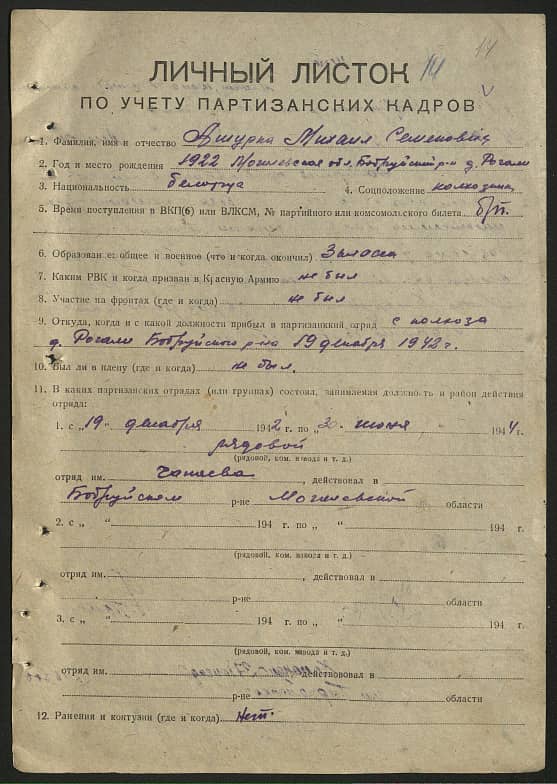 14
14
ЛИЧНЫЙ ЛИСТОК
ПО УЧЕТУ ПАРТИЗАНСКИХ КАДРОВ
1. Фамилия, имя и отчество Ашурка Михаил Семенович
2. Год и место рождения 1922 Могилевская обл. Бобруйский р-н д. Рогали
3. Национальность белорус 4. Соцположение колхозник
5. Время поступления в ВКП(б) или ВЛКСМ, № партийного или комсомольского билета б/п.
6. Образование общее и военное (что и когда окончил) 3 класса
7. Каким РВК и когда призван в Красную Армию не был
8. Участие на фронтах (где и когда) не был
9. Откуда, когда и с какой должности прибыл в партизанский отряд с колхоза
д. Рогали Бобруйского р-на 19 декабря 1942 г.
10. Был ли в плену (где и когда) не был.
11. В каких партизанских отрядах (или группах) состоял, занимаемая должность и район действия
отряда:
1. с „19“ декабря 1942 г. по „30“ июня 1944 г.
рядовой
(рядовой, ком. взвода и т. д.)
отряд им. Чапаева, действовал в
Бобруйском р-не Могилевской области
2. с „ “ 194 г. по „ “ 194 г.
(рядовой, ком. взвода и т. д.)
отряд им. , действовал в
р-не области
3. с „ “ 194 г. по „ “ 194 г.
(рядовой, ком. взвода и т. д.)
отряд им. действовал в
р-не области
12. Ранения и контузии (где и когда) Нет.